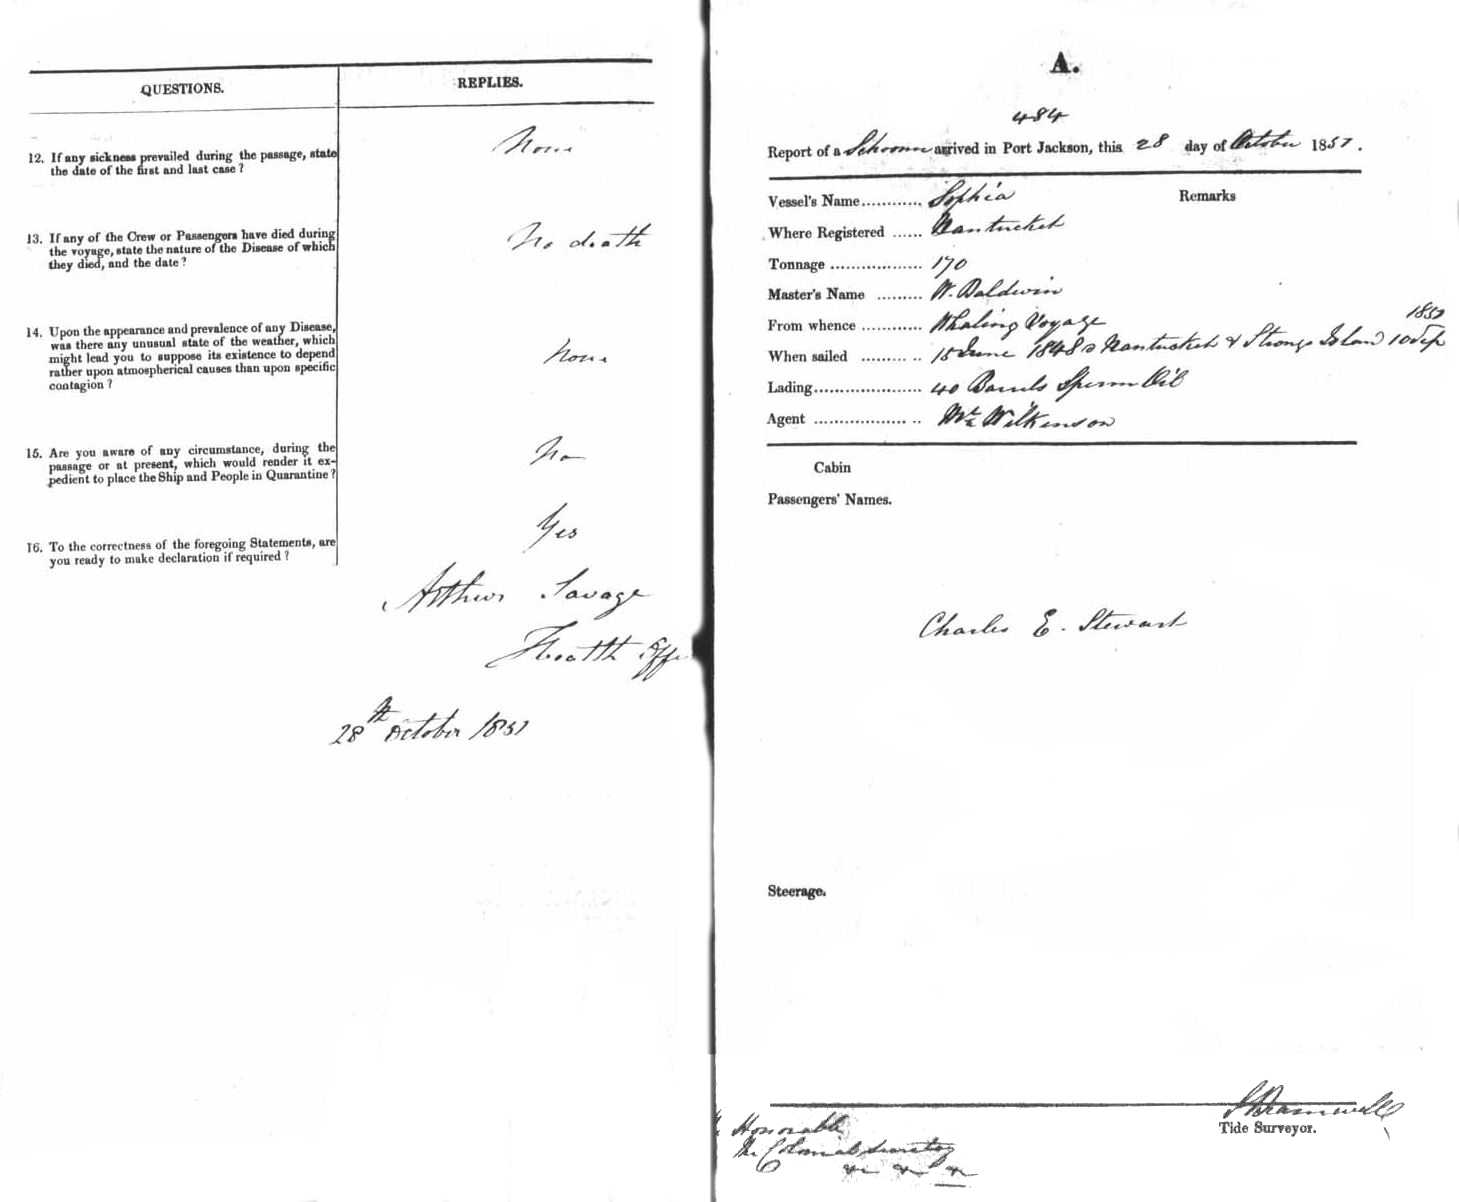 QUESTIONS.
REPLIES.
12. If any sickness prevailed during the passage, state
the date of the first and last case ?
None
13. If any of the Crew or Passengers have died during
the voyage, state the nature of the Disease of which
they died, and the date ?
No death
14. Upon the appearance and prevalence of any Disease,
was there any unusual state of the weather, which
might lead you to suppose its existence to depend
rather upon atmospherical causes than upon specific
contagion ?
None
15. Are you aware of any circumstance, during the
passage or at present, which would render it ex-
pedient to place the Ship and People in Quarantine ?
No
16. To the correctness of the foregoing Statements, are
you ready to make declaration if required ?
Yes
Arthur Savage
Health Offr
28th October 1851
A.
484
Report of a Schooner arrived in Port Jackson, this 28 day of October 1851.
Vessel's Name............ Sophia
Remarks
Where Registered ...... Nantucket
Tonnage .................. 170
Master's Name ......... W. Baldwin
From whence ............ Whaling Voyage
1851
When sailed ......... .. 15 June 1848 Nantucket & Strongs Island 10 Sep
Lading..................... 40 Barrels Sperm Oil
Agent .................. .. Mr Wilkinson
Cabin
Passengers' Names.
Charles E. Stewart
Steerage.
Bramwell
Tide Surveyor.
Honorable
The Colonial Secretary